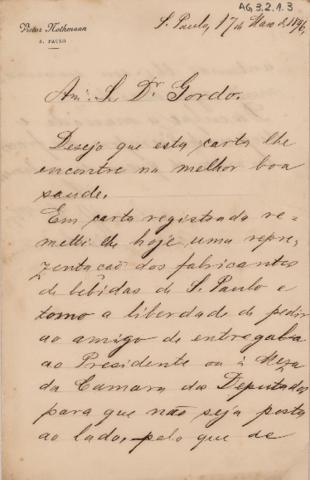 AG.3.2.1.3
Victor Nothmann
S. PAULO
S. Paulo, 17 de Maio de 1896.
Am.º Sr. Dr. Gordo.
Desejo que esta carta lhe
encontre na melhor boa
saude.
Em carta registrada re-
metti lhe hoje uma repre-
zentação dos fabricantes
de bebidas de S. Paulo e
tomo a liberdade de pedir
ao amigo de entregal-a
ao Presidente ou à Meza
da Camara dos Deputados
para que não seja posta
ao lado, pelo que de